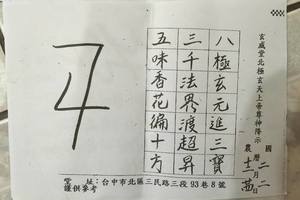 玄威堂北極玄天上帝尊神降示
國曆二月二日
農曆十二月廿日
八極玄元進三寶
三千法界渡超昇
五味香花徧十方
堂址：台中市北區三民路三段93巷8號
謹供參考